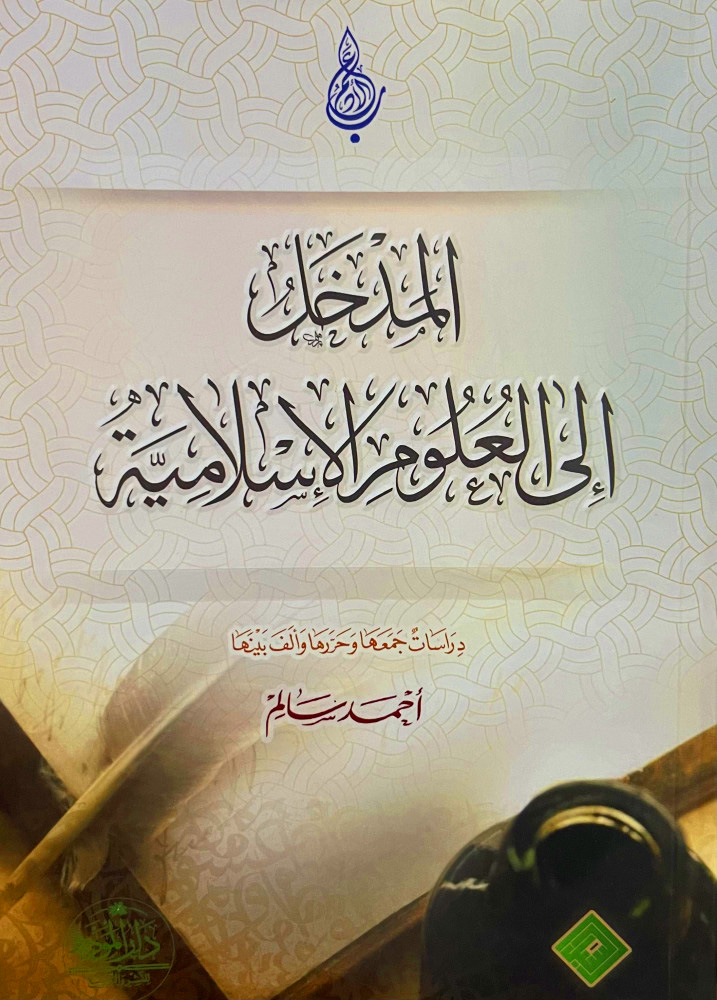 المَدْخَلُ
إِلى العُلُومِ الإِسْلَامِيَّةِ
دِرَاسَاتٌ جَمَعَهَا وَحَرَّرَهَا وَأَلَّفَ بَيْنَهَا
أَحْمَد سَالِم